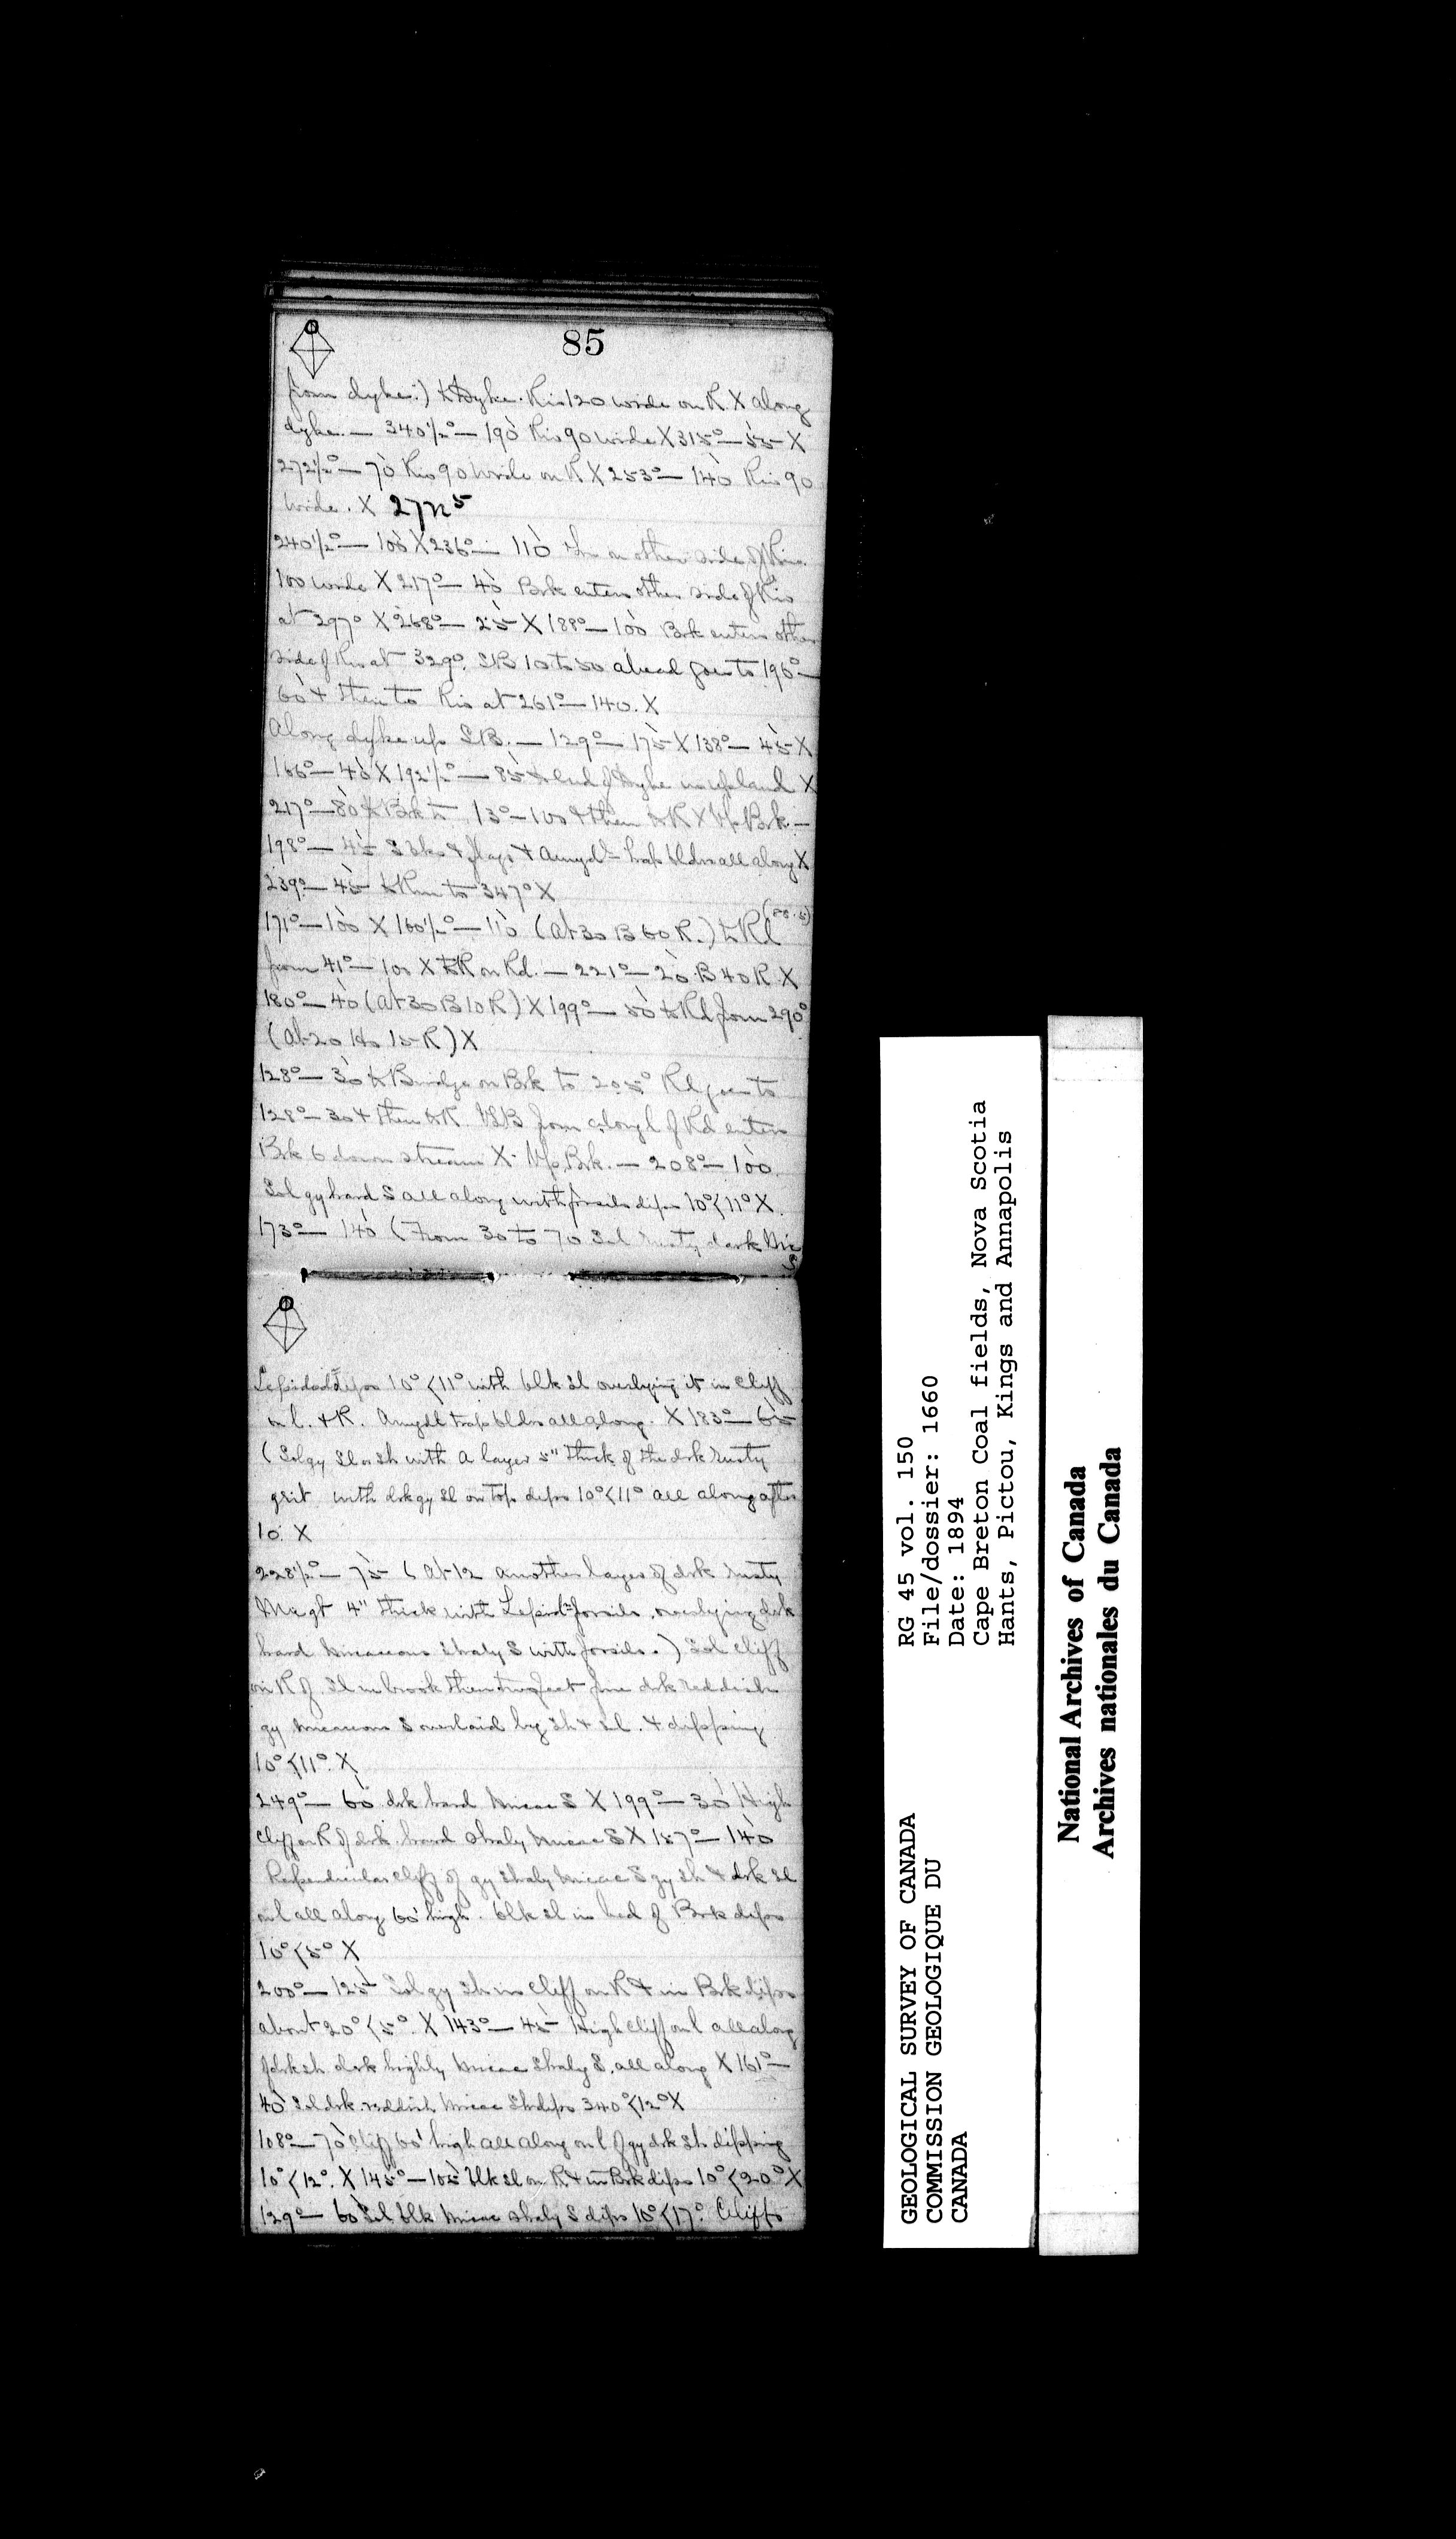 85
from dyke.) to Dyke. Riv 120 wide on R. X along
dyke. — 340½° — 190 Riv 90 wide X 315° — 55 X
272½° — 70 Riv 90 wide on R X 253° — 140 Riv 90
wide. X
240½° — 100 X 236° — 110 on other side of Riv
100 wide X 217° — 40 Brk enters other side of Riv
at 297° X 268° — 25 X 188° — 100 Brk enters other
side of Riv at 329°. 10 to 50 ahead goes to 196° —
60 & then to Riv at 261° — 140. X
Along dyke up — 129° — 175 X 138° — 45 X
166° — 40 X 192½° — 85 to end of Dyke upland X
217° — 80 to Brk to 13° — 100 & then to R X Up Brk. —
198° — 45 & flags & Amygdl trap bldrs all along X
239° — 45 to to 347° X
171° — 100 X 160½° — 110 (at 30 B 60 R.) to Rd
from 41° — 100 X to R on Rd. — 221° — 20 B 40 R X
180° — 40 (at 30 B 10 R) X 199° — 50 to Rd from 290°
(at 20 Ho 15 R) X
128° — 30 to Bridge on Brk to 205° Rd goes to
128° — 30 & then to R. from along l of Rd enters
Brk 6 down stream X Up Brk. — 208° — 100
Sol gy hard S all along with fossils dips 10°<11° X
173° — 140 (From 30 to 70 Sol rusty dark Mic
S
dips 10°<11° with blk sl overlying it in cliff
on l. & R. Amygdl trap bldrs all along. X 183° — 65
(Sol gy sl or sh with a layer 5" thick of the drk rusty
grit with drk gy sl on top dips 10°<11° all along after
10. X
228½° — 75 (at 12 another layer of drk rusty
4" thick with Lepid fossils, overlying drk
hard micaceous shaly S with fossils.) Sol cliff
on R of sl in brook then two feet fine drk reddish
gy micaceous S overlaid by sh & sl. & dipping
10°<11°. X
249° — 60 drk hard micac S X 199° — 30 High
cliff on R of drk hard shaly micac S X 157° — 140
Perpendicular cliff of gy shaly micac S gy sh & drk sl
on l all along 60' high. blk sl in bed of Brk dips
10°<5° X
200° — 125 Sol gy sh in cliff on R & in Brk dips
about 20°<5°. X 143° — 45 High cliff on l all along
of drk sh drk highly micac shaly S. all along X 161° —
40 Sol drk reddish micac Sh dips 340°<12° X
108° — 70 cliff 60' high all along on l of gy drk sh dipping
10°<12°. X 145° — 105 blk sl on R & in Brk dips 10°<20° X
129° — 60 Sol blk micac shaly S dips 10°<17°. Cliffs
GEOLOGICAL SURVEY OF CANADA
COMMISSION GEOLOGIQUE DU
CANADA
RG 45 vol. 150
File/dossier: 1660
Date: 1894
Cape Breton Coal fields, Nova Scotia
Hants, Pictou, Kings and Annapolis
National Archives of Canada
Archives nationales du Canada